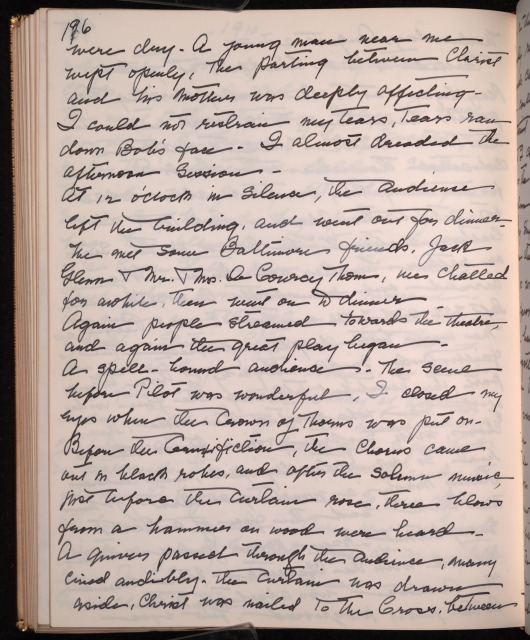 196
were dry - A young man near me
wept openly, The parting between Christ
and his Mother was deeply affecting -
I could not restrain my tears, Tears ran
down Bob's face - I almost dreaded the
afternoon Session -
At 12 o'clock in Silence, the Audience
left the building, and went out for dinner -
We met some Baltimore friends, Jack
Glenn & Mr. & Mrs. De Courcy Thom, we chatted
for awhile, then went on to dinner -
Again people streamed towards the theatre,
and again the great play began -
A spell-bound audience - The scene
before Pilot was wonderful, I closed my
eyes when the Crown of Thorns was put on -
Before the Crucifiction, the Chorus came
out in black robes, and after the solemn music,
just before the Curtain rose, three blows
from a hammer on wood were heard -
A quiver passed through the Audience, many
cried audibly - the Curtain was drawn
aside, Christ was nailed to the Cross, between